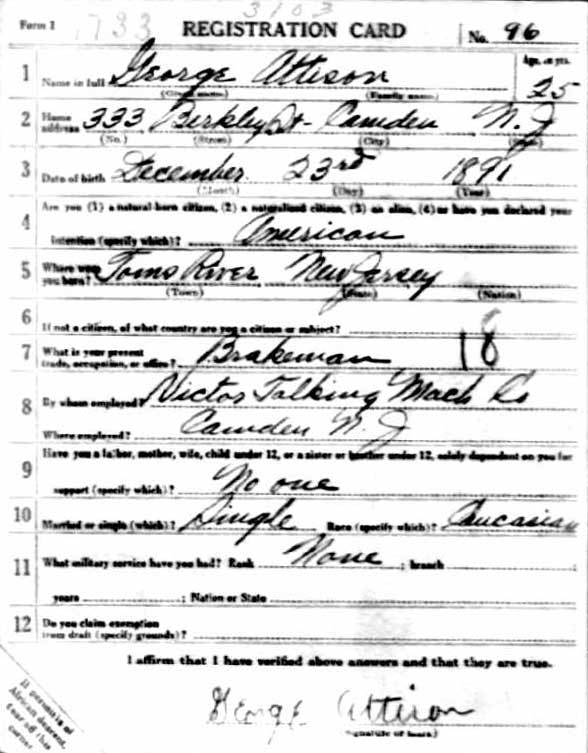 Form 1 1733 3103 REGISTRATION CARD No. 96
1 Name in full George Attison Age, in yrs. 25
(Given name) (Family name)
2 Home address 333 Berkley St - Camden N. J
(No.) (Street) (City) (State)
3 Date of birth December 23rd 1891
(Month) (Day) (Year)
4 Are you (1) a natural-born citizen, (2) a naturalized citizen, (3) an alien, (4) or have you declared your
intention (specify which)? American
5 Where were you born? Toms River New Jersey
(Town) (State) (Nation)
6 If not a citizen, of what country are you a citizen or subject?
7 What is your present trade, occupation, or office? Brakeman 18
8 By whom employed? Victor Talking Mach Co
Where employed? Camden N. J
9 Have you a father, mother, wife, child under 12, or a sister or brother under 12, solely dependent on you for
support (specify which)? No one
10 Married or single (which)? Single Race (specify which)? Caucasian
11 What military service have you had? Rank None ; branch
years ; Nation or State
12 Do you claim exemption from draft (specify grounds)?
I affirm that I have verified above answers and that they are true.
George Attison
(Signature or mark)
If person is of
African descent,
tear off this
corner